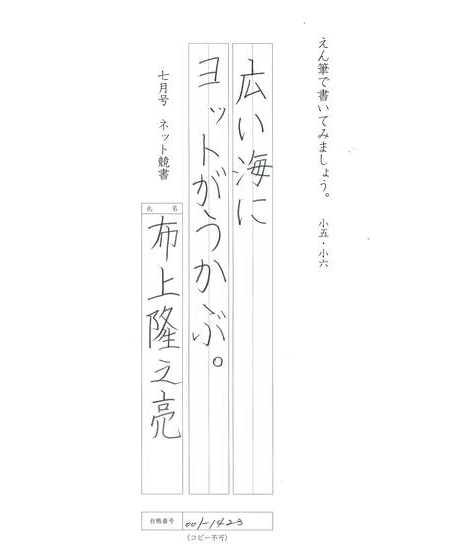 えん筆で書いてみましょう。　小五・小六
広い海に
ヨットがうかぶ。
七月号　ネット競書
氏　名
布上隆之亮
台帳番号
001-1423
(コピー不可)